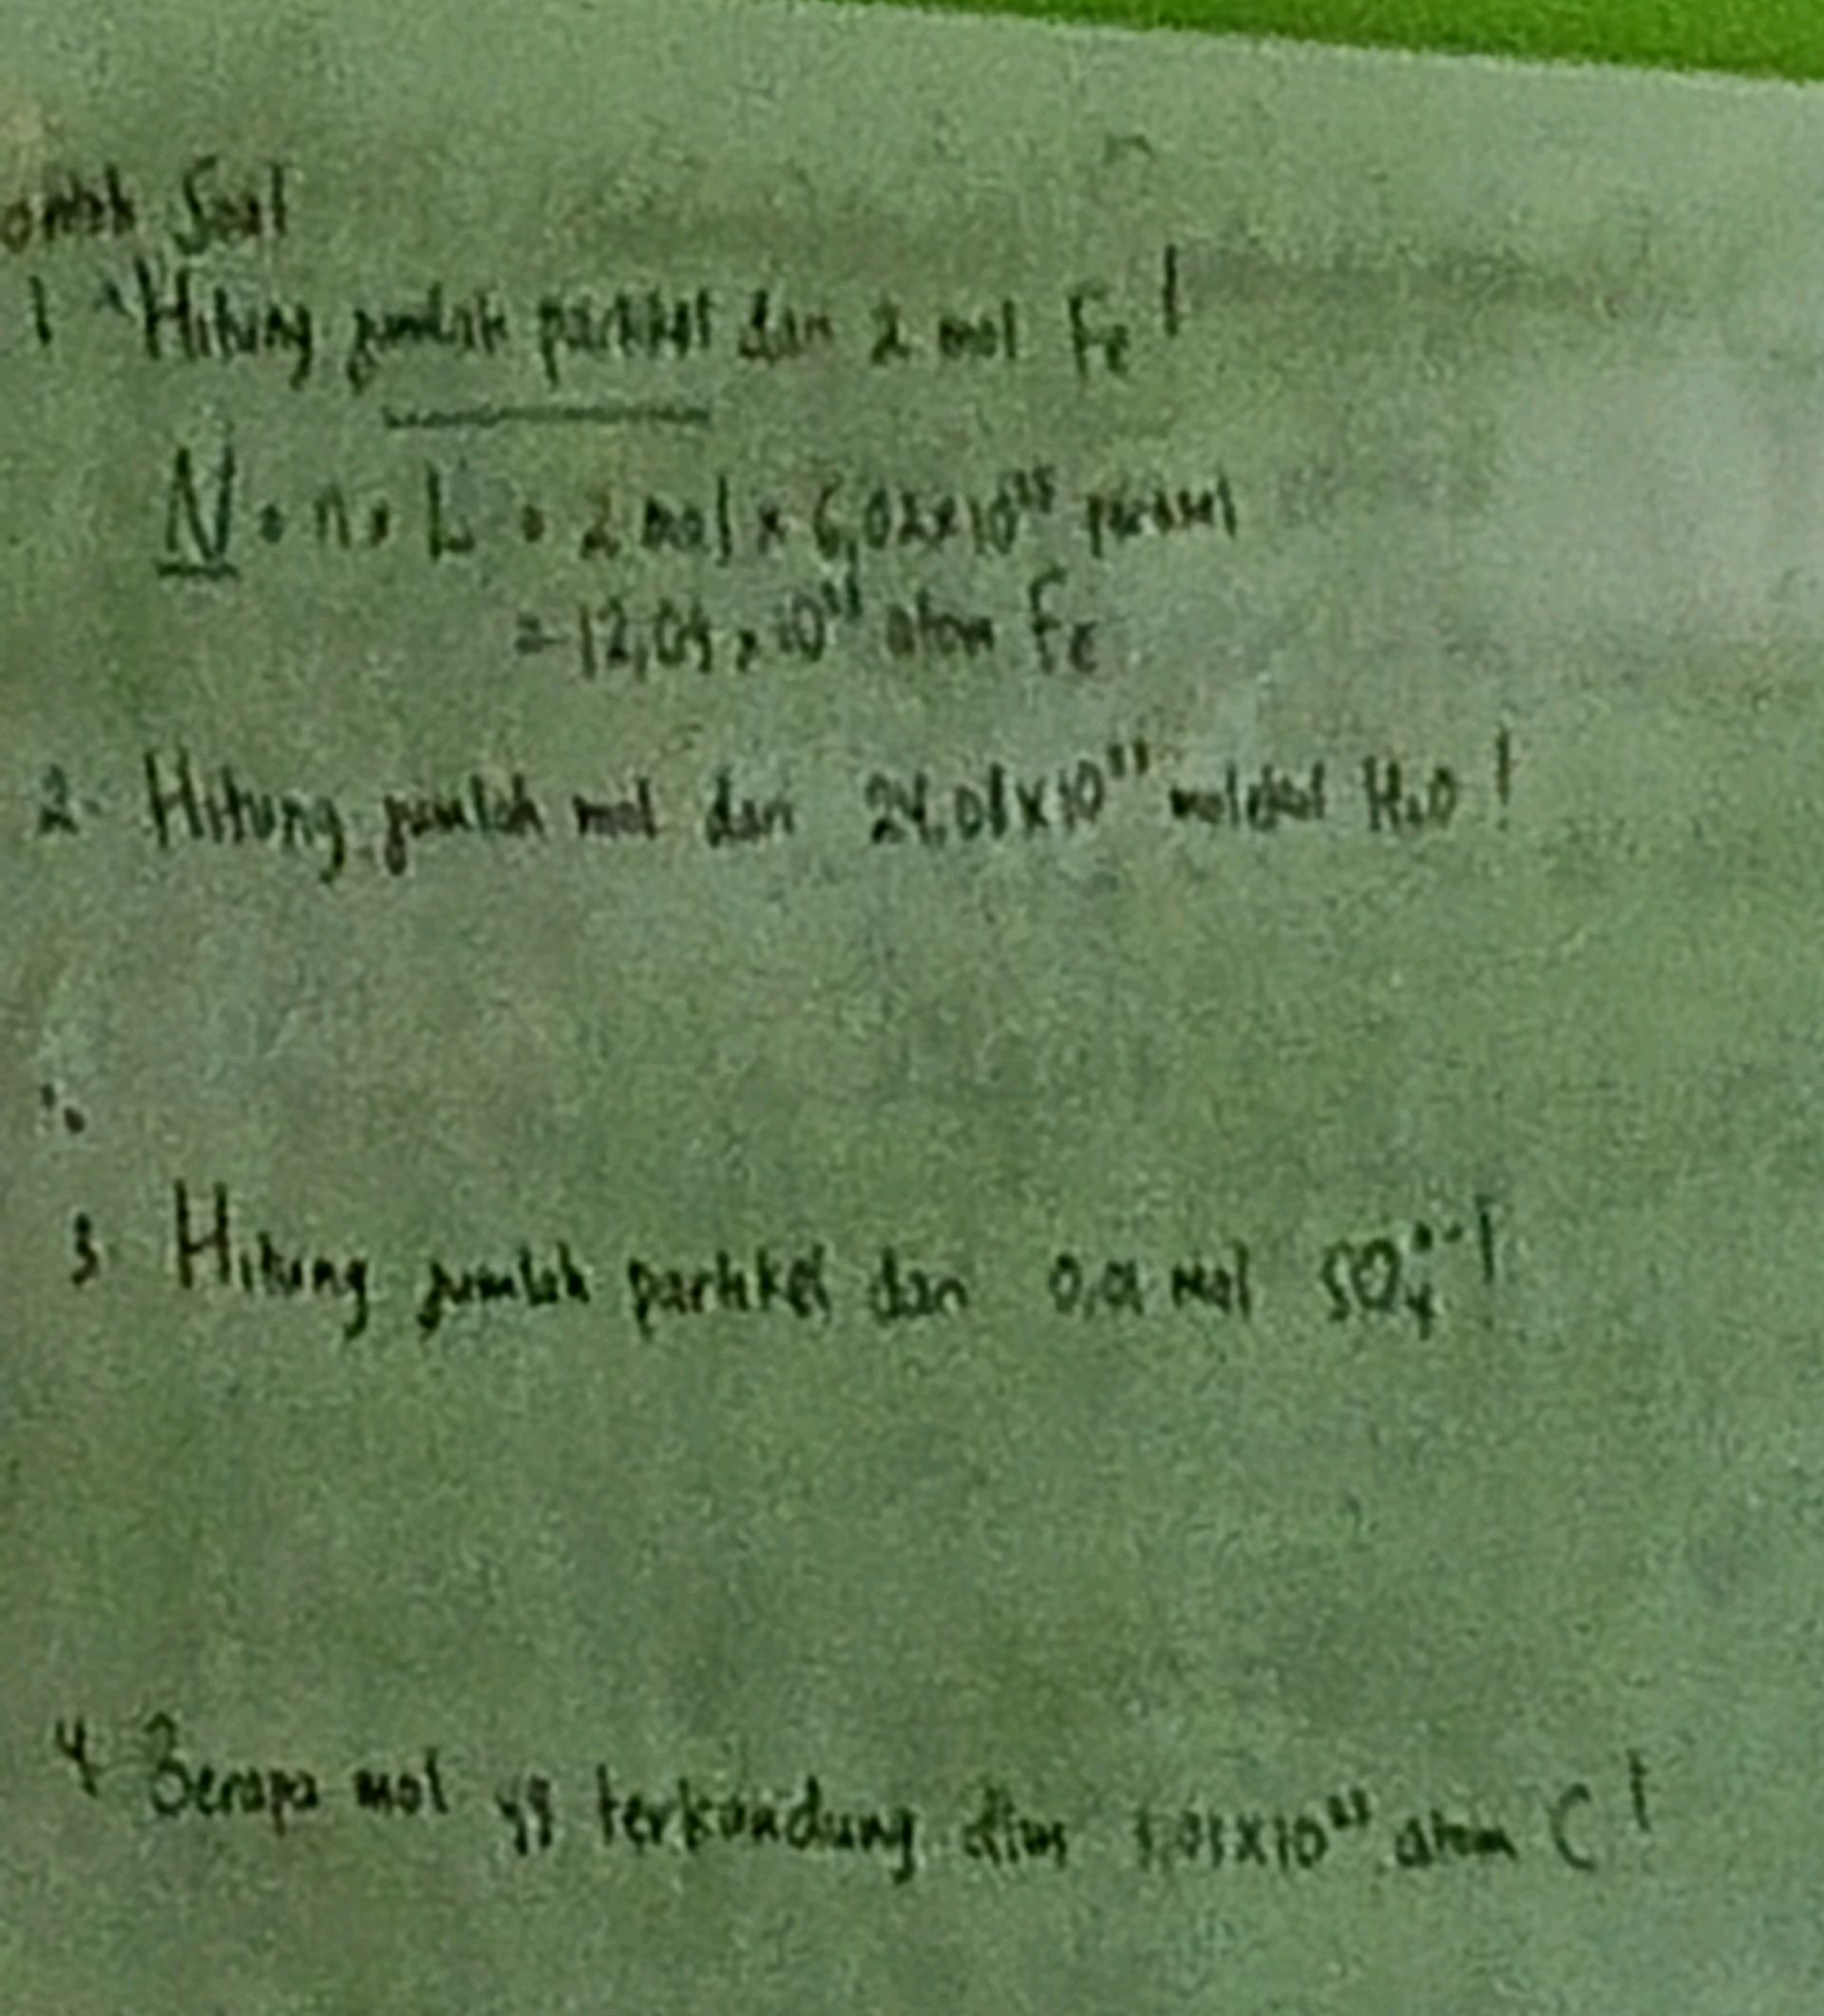 Soal
1. Hitung jumlah partikel dari 2 mol Fe!
N = n x L = 2 mol x 6,02x10²³ partikel
= 12,04 x 10²³ atom Fe
2. Hitung jumlah mol dari 24,08x10²³ molekul H₂O!
3. Hitung jumlah partikel dari 0,01 mol SO₄²⁻!
4. Berapa mol yg terkandung dlm x10²³ atom C!